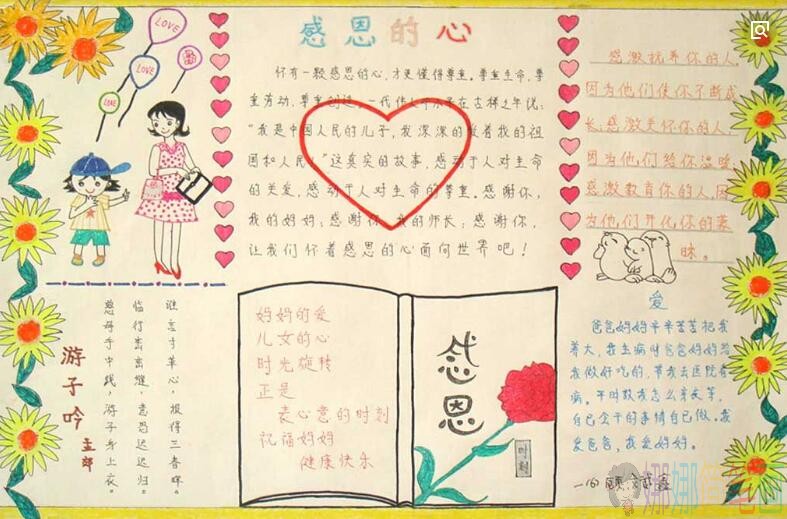 感恩的心
LOVE
LOVE
LOVE
怀有一颗感恩的心,才更懂得尊重。尊重生命,尊
重劳动,尊重创造。一代伟人邓小平在古稀之年说:
"我是中国人民的儿子,我深深的爱着我的祖
国和人民!"这真实的故事,感动于人对生命
的关爱,感动于人对生命的尊重。感谢你,
我的妈妈;感谢你,我的师长;感谢你,
让我们怀着感恩的心面向世界吧!
感激抚养你的人,
因为他们使你不断成
长;感激关怀你的人,
因为他们给你温暖;
感激教育你的人,因
为他们开化你的蒙
昧。
游子吟
慈母手中线,游子身上衣。
临行密密缝,意恐迟迟归。
谁言寸草心,报得三春晖。
妈妈的爱
儿女的心
时光旋转
正是
表心意的时刻
祝福妈妈
健康快乐
感恩
时刻
爱
爸爸妈妈辛辛苦苦把我
养大,我生病时爸爸妈妈给
我做好吃的,带我去医院看
病,平时教我怎么
自己会干的事情自己做。我
爱爸爸,我爱妈妈。